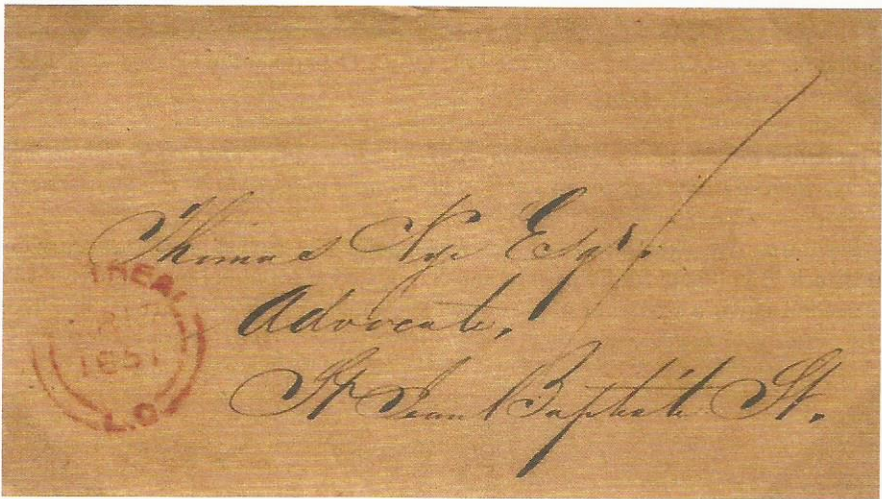 Thomas Nye Esqr.
Advocate,
St Jean Baptiste St.
TREAL
17
1851
L.C